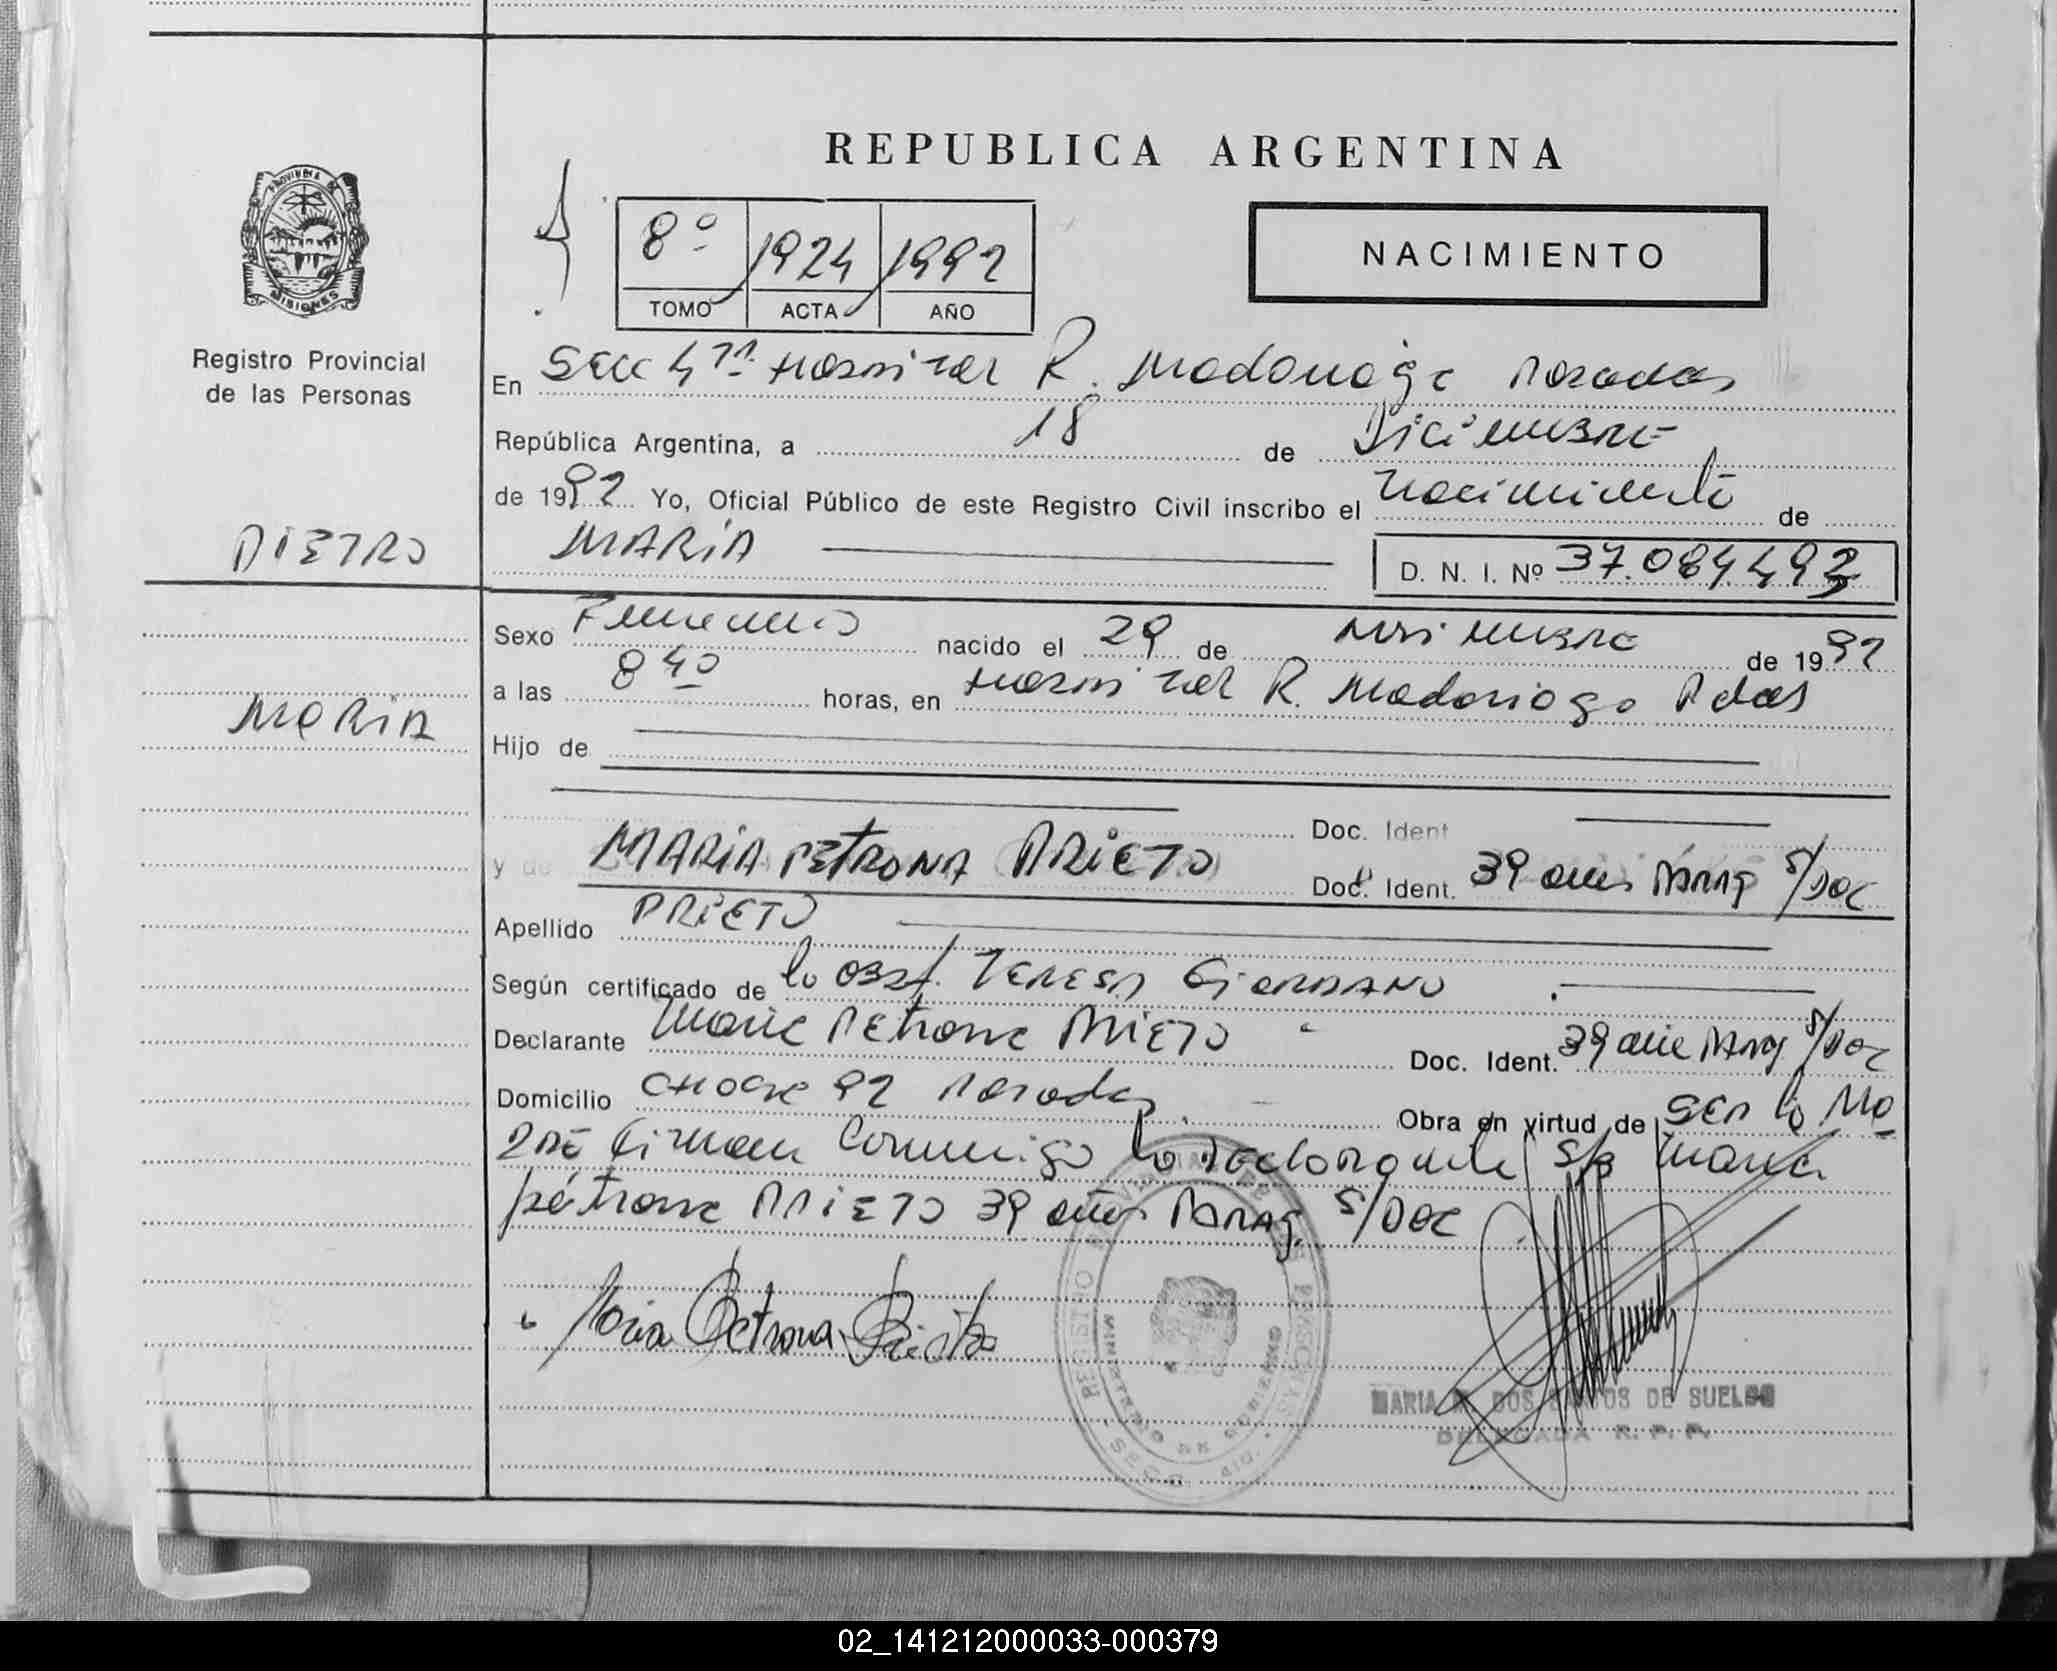 REPUBLICA ARGENTINA
PROVINCIA DE
MISIONES
Registro Provincial
de las Personas
8º 1924 1992
TOMO ACTA AÑO
NACIMIENTO
En Secc 4ta Hospital R. Madariaga Posadas
República Argentina, a 18 de Diciembre
de 1992 Yo, Oficial Público de este Registro Civil inscribo el nacimiento de
PRIETO
MARIA
MARIA D. N. I. Nº 37.084.493
Sexo Femenino nacido el 29 de Noviembre de 1992
a las 8 40 horas, en Hospital R. Madariaga Pdas
Hijo de
Doc. Ident
y de MARIA PETRONA PRIETO Doc. Ident. 39 años Parag S/DOC
Apellido PRIETO
Según certificado de la Obst. TERESA GIORDANO
Declarante Maria Petrona PRIETO Doc. Ident. 39 años Parag S/DOC
Domicilio 92 Posadas Obra en virtud de SER la Ma
dre Firman Conmigo la declarante Maria
Petrona PRIETO 39 años Parag. S/DOC
Maria Petrona Prieto
REGISTRO PROVINCIAL DE LAS PERSONAS
MINISTERIO DE GOBIERNO
MARIA DOS SANTOS DE SUELDO
DELEGADA R. P. P.
02_141212000033-000379